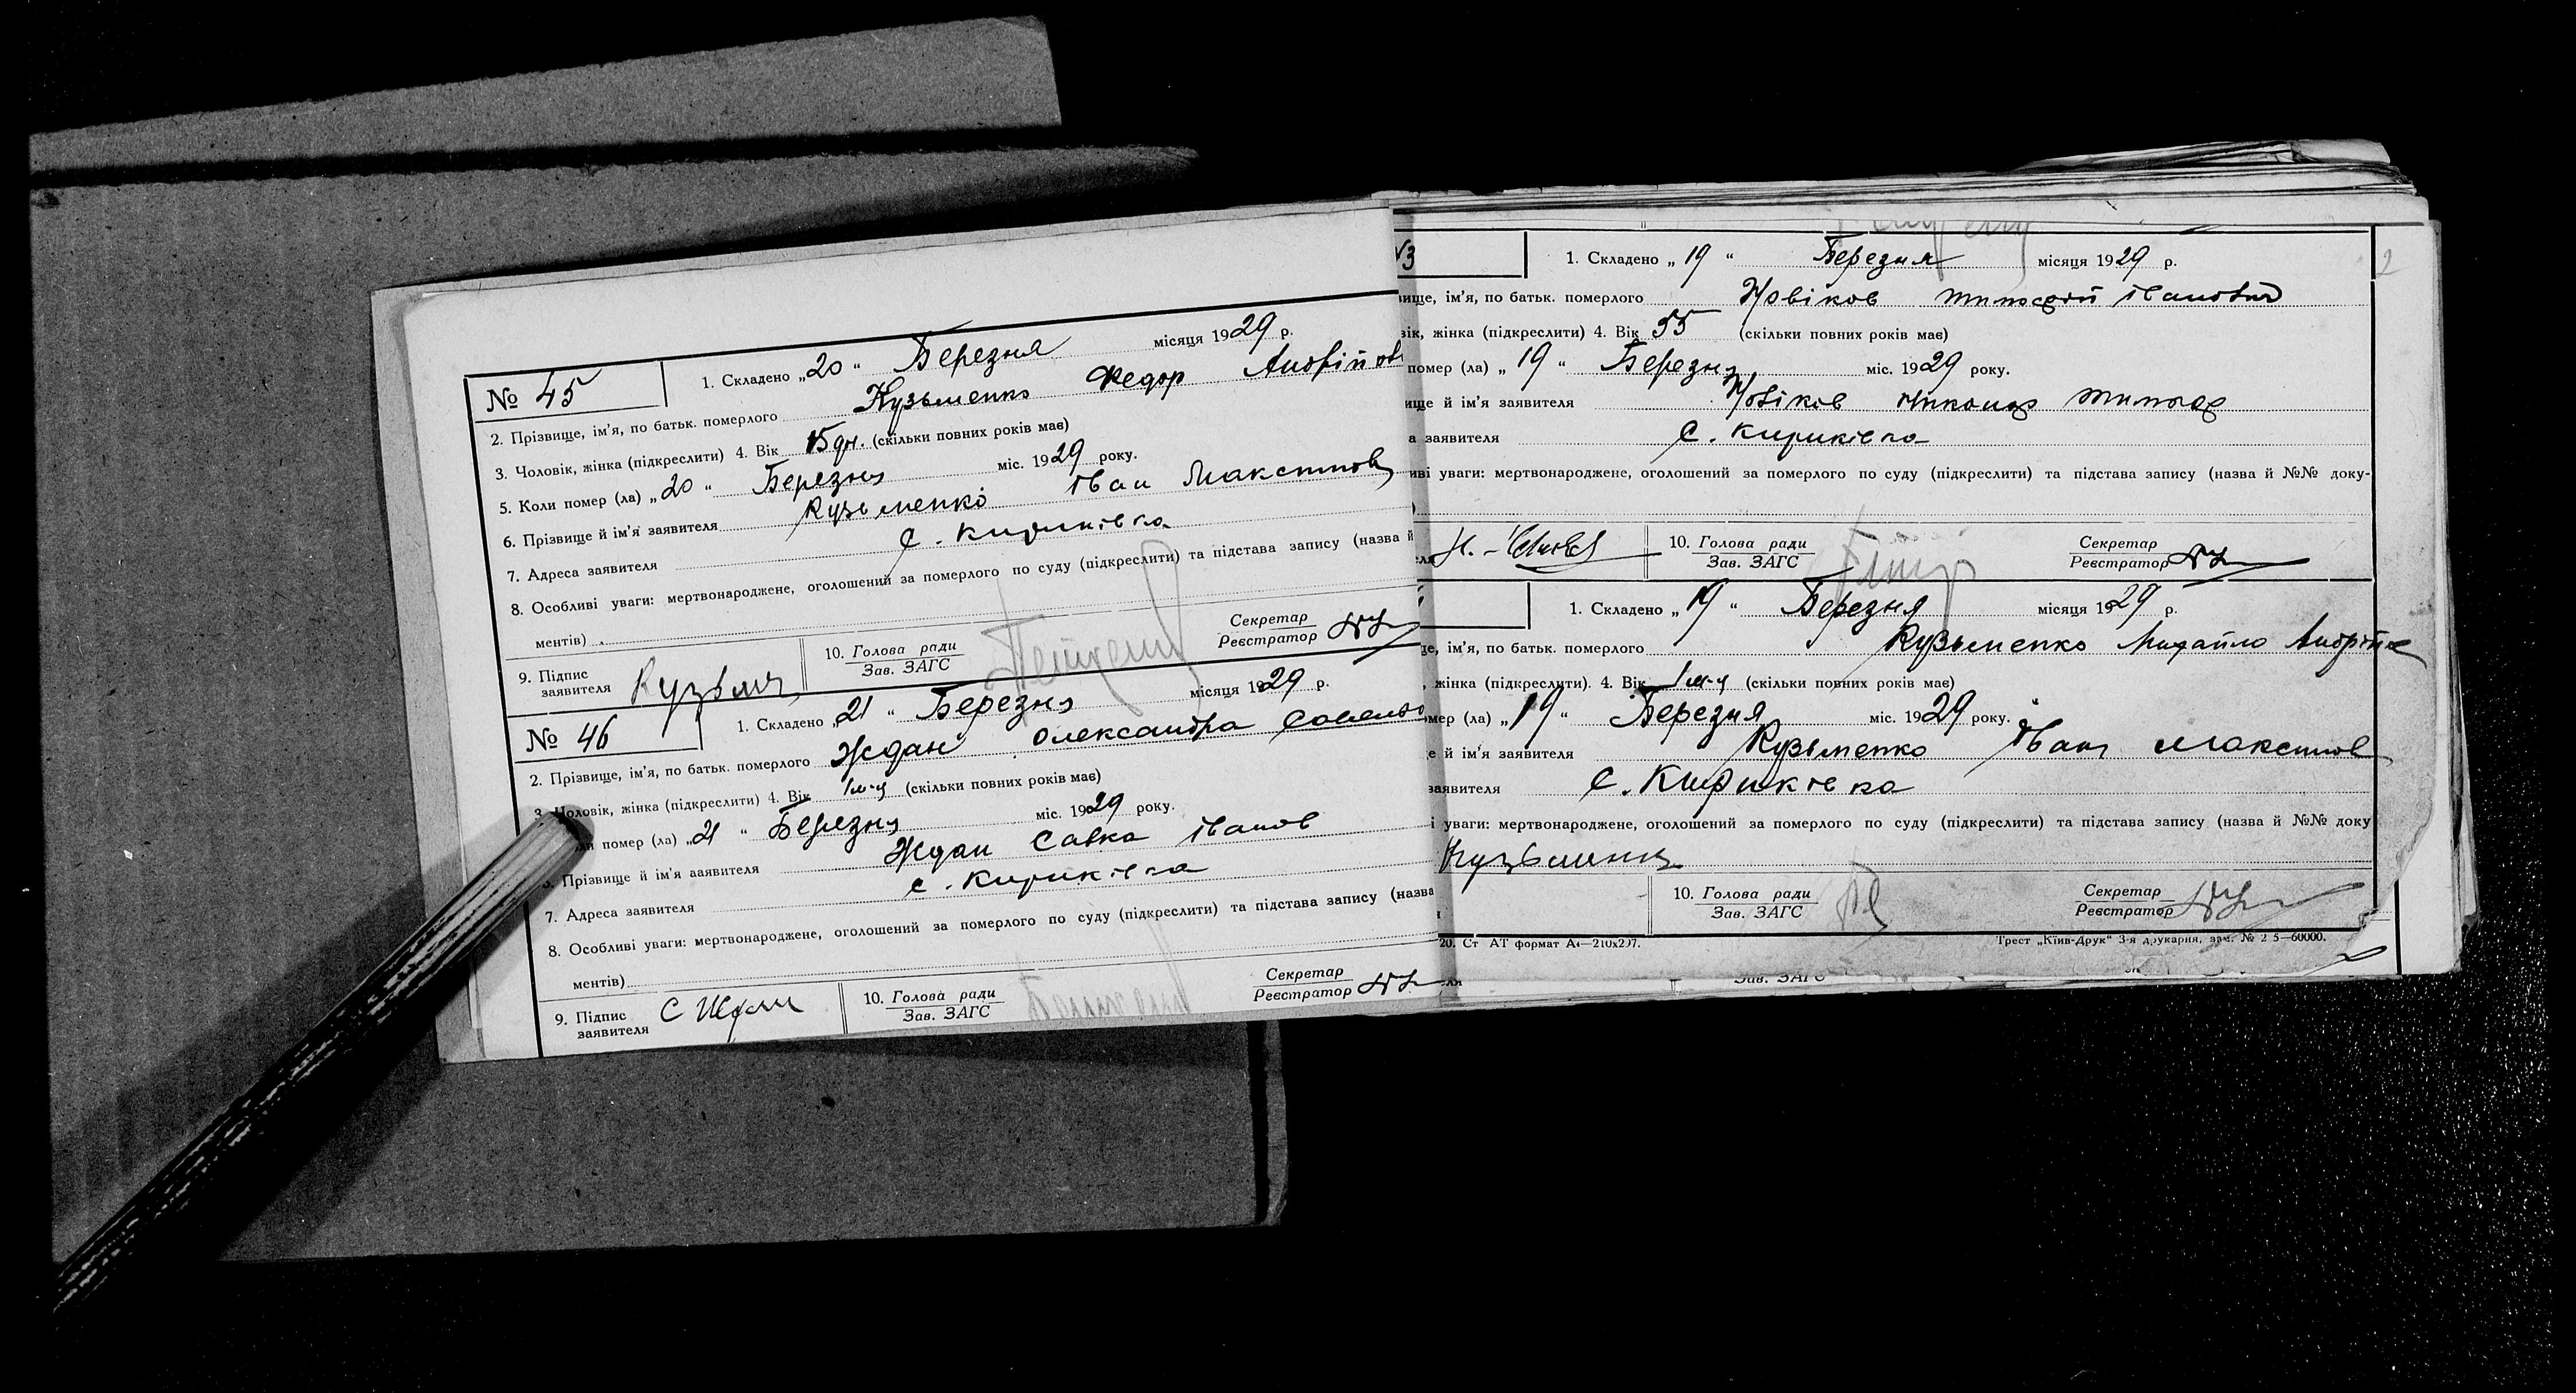 № 45
1. Складено „20“ Березня місяця 1929 р.
2. Прізвище, ім'я, по батьк. померлого Кузьменко Федор Андрійов
3. Чоловік, жінка (підкреслити) 4. Вік 15 дн. (скільки повних років має)
5. Коли помер (ла) „20“ Березня міс. 1929 року.
6. Прізвище й ім'я заявителя Кузьменко Іван Максимов
7. Адреса заявителя с. Кириківка
8. Особливі уваги: мертвонароджене, оголошений за померлого по суду (підкреслити) та підстава запису (назва й
ментів)
9. Підпис заявителя Кузьмн
10. Голова ради
Зав. ЗАГС
Секретар
Реєстратор
№ 46
1. Складено „21“ Березня місяця 1929 р.
2. Прізвище, ім'я, по батьк. померлого Ждан Олександра
3. Чоловік, жінка (підкреслити) 4. Вік 1 м-ц (скільки повних років має)
помер (ла) „21“ Березня міс. 1929 року.
Прізвище й ім'я заявителя Ждан Савка Іванов
7. Адреса заявителя с. Кириківка
8. Особливі уваги: мертвонароджене, оголошений за померлого по суду (підкреслити) та підстава запису (назва
ментів)
9. Підпис заявителя С Ждан
10. Голова ради
Зав. ЗАГС
Секретар
Реєстратор
3
1. Складено „19“ Березня місяця 1929 р.
2
вище, ім'я, по батьк. померлого Новіков Тимофій Іванович
вік, жінка (підкреслити) 4. Вік 55 (скільки повних років має)
помер (ла) „19“ Березня міс. 1929 року.
ище й ім'я заявителя Новіков Никанор Тимоф
а заявителя с. Кириківка
иві уваги: мертвонароджене, оголошений за померлого по суду (підкреслити) та підстава запису (назва й №№ доку-
10. Голова ради
Зав. ЗАГС
Секретар
Реєстратор
1. Складено „19“ Березня місяця 1929 р.
ще, ім'я, по батьк. померлого Кузьменко Михайло Андрійов
, жінка (підкреслити). 4. Вік 1 м-ц (скільки повних років має)
мер (ла) „19“ Березня міс. 1929 року.
е й ім'я заявителя Кузьменко Іван Максимов
заявителя С. Кириківка
і уваги: мертвонароджене, оголошений за померлого по суду (підкреслити) та підстава запису (назва й №№ доку
Кузьменко
10. Голова ради
Зав. ЗАГС
Секретар
Реєстратор
20. Ст АТ формат А4—210х297.
Трест „Київ-Друк“ 3-я друкарня, зам. № 2 5—60000.
Зав. ЗАГС